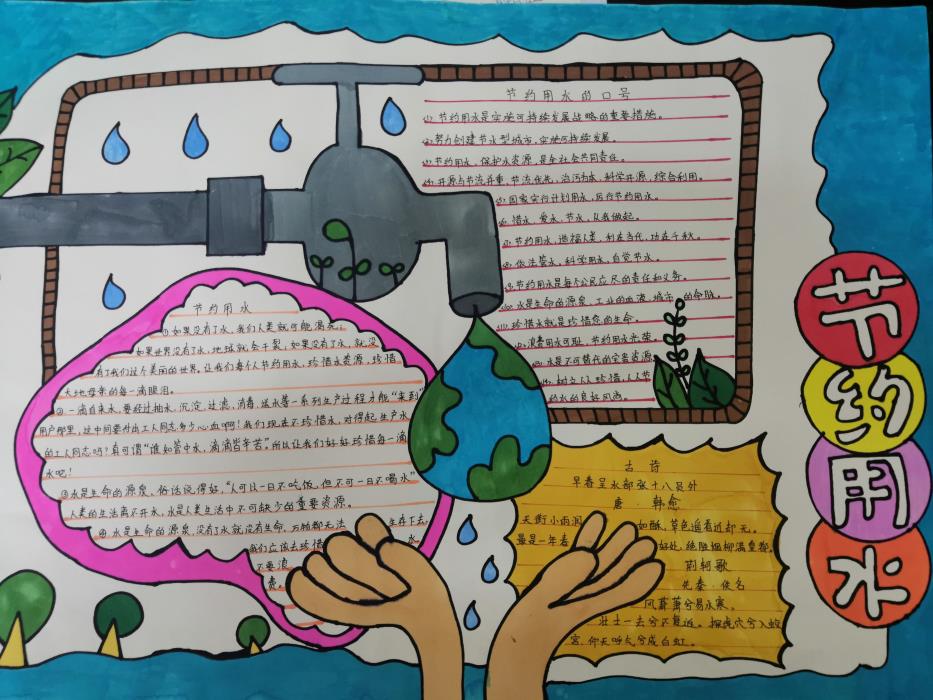 节约用水的口号
(1) 节约用水是实施可持续发展战略的重要措施。
(2) 努力创建节水型城市,实施可持续发展。
(3) 节约用水,保护水资源,是全社会共同责任。
(4) 开源与节流并重,节流优先,治污为本,科学开源,综合利用。
(5) 国家实行计划用水,厉行节约用水。
惜水、爱水、节水,从我做起。
节约用水,造福人类,利在当代,功在千秋。
依法管水,科学用水,自觉节水。
节约用水是每个公民应尽的责任和义务。
水是生命的源泉、工业的血液、城市的命脉。
珍惜水就是珍惜您的生命。
浪费用水可耻,节约用水光荣。
水是不可替代的宝贵资源
树立人人珍惜,人人节
约水的良好风尚。
节约用水
①如果没有了水,我们人类就可能渴死;
如果世界没有了水,地球就会干裂;如果没有了水,就没
有了我们这个美丽的世界。让我们每个人节约用水,珍惜水资源,珍惜
大地母亲的每一滴眼泪。
②一滴自来水,要经过抽水、沉淀、过滤、消毒、送水等一系列生产过程才能“来到”
用户那里,这中间要付出工人同志多少心血啊!我们现在不珍惜水,对得起生产水
的工人同志吗?真可谓“谁知管中水,滴滴皆辛苦”所以让我们好好珍惜每一滴
水吧!
③水是生命的源泉,俗话说得好,“人可以一日不吃饭,但不可一日不喝水”
人类的生活离不开水,水是人类生活中不可缺少的重要资源。
④水是生命的源泉,没有了水就没有生命,万物都无法生存下去,
我们应该去珍惜 水
不要浪
费。
古诗
早春呈水部张十八员外
唐·韩愈
天街小雨润 如酥,草色遥看近却无。
最是一年春 好处,绝胜烟柳满皇都。
荆轲歌
先秦·佚名
风萧萧兮易水寒,
壮士一去兮不复返。探虎穴兮入蛟
宫,仰天呼气兮成白虹。
节约用水